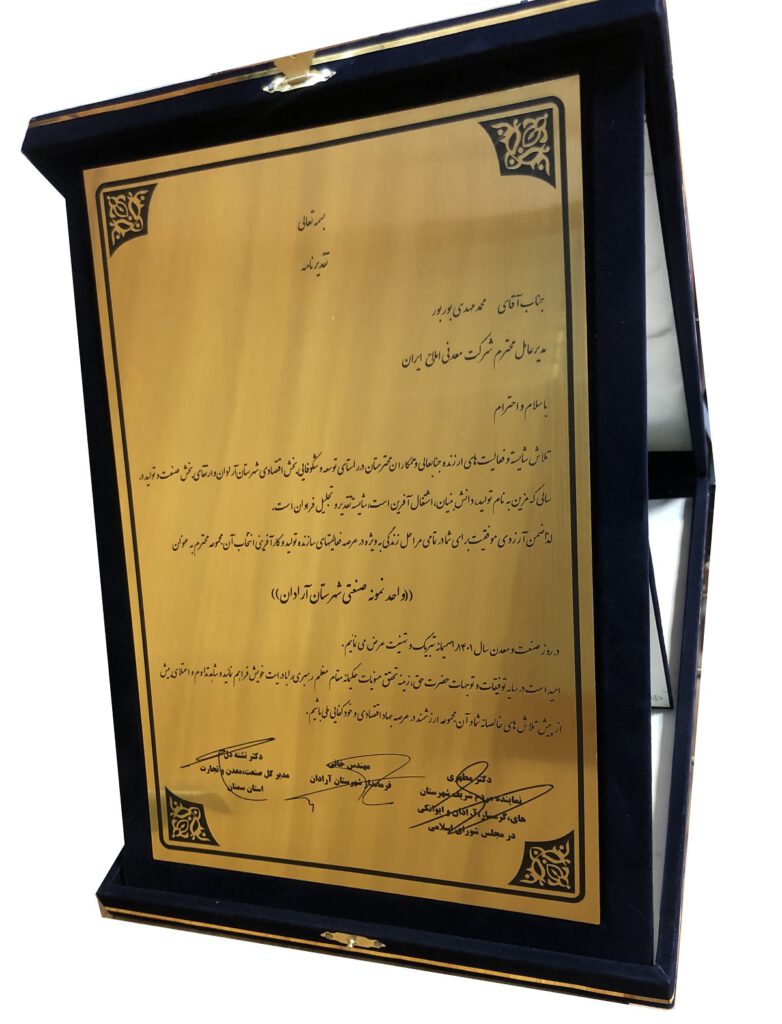 بسمه تعالی
تقدیرنامه
جناب آقای محمدمهدی پورپور
مدیرعامل محترم شرکت معدنی املاح ایران
باسلام و احترام
تلاش شایسته و فعالیت های ارزنده جنابعالی و همکاران محترمتان در راستای توسعه و شکوفایی بخش اقتصادی شهرستان آرادان و ارتقای بخش صنعت و تولید در
سالی که مزین به نام تولید، دانش بنیان، اشتغال آفرین است، شایسته تقدیر و تجلیل فراوان است.
لذا ضمن آرزوی موفقیت برای شما در تمامی مراحل زندگی به ویژه در عرصه فعالیتهای سازنده تولید و کارآفرینی انتخاب آن مجموعه محترم به عنوان
((واحد نمونه صنعتی شهرستان آرادان))
در روز صنعت و معدن سال ۱۴۰۱ صمیمانه تبریک و تهنیت عرض می نمائیم.
امید است در سایه توفیقات و توجهات حضرت حق، زمینه تحقق منویات حکیمانه مقام معظم رهبری را با درایت خویش فراهم نمائید و شاهد تداوم و اعتلای بیش
از پیش تلاش های خالصانه شما و آن مجموعه ارزشمند در عرصه جهاد اقتصادی و خودکفایی ملی باشیم.
دکتر مطهری
نماینده مردم شریف شهرستان
های، گرمسار، آرادان و ایوانکی
در مجلس شورای اسلامی
مهندس خانی
فرماندار شهرستان آرادان
دکتر تشنه دل
مدیر کل صنعت، معدن و تجارت
استان سمنان